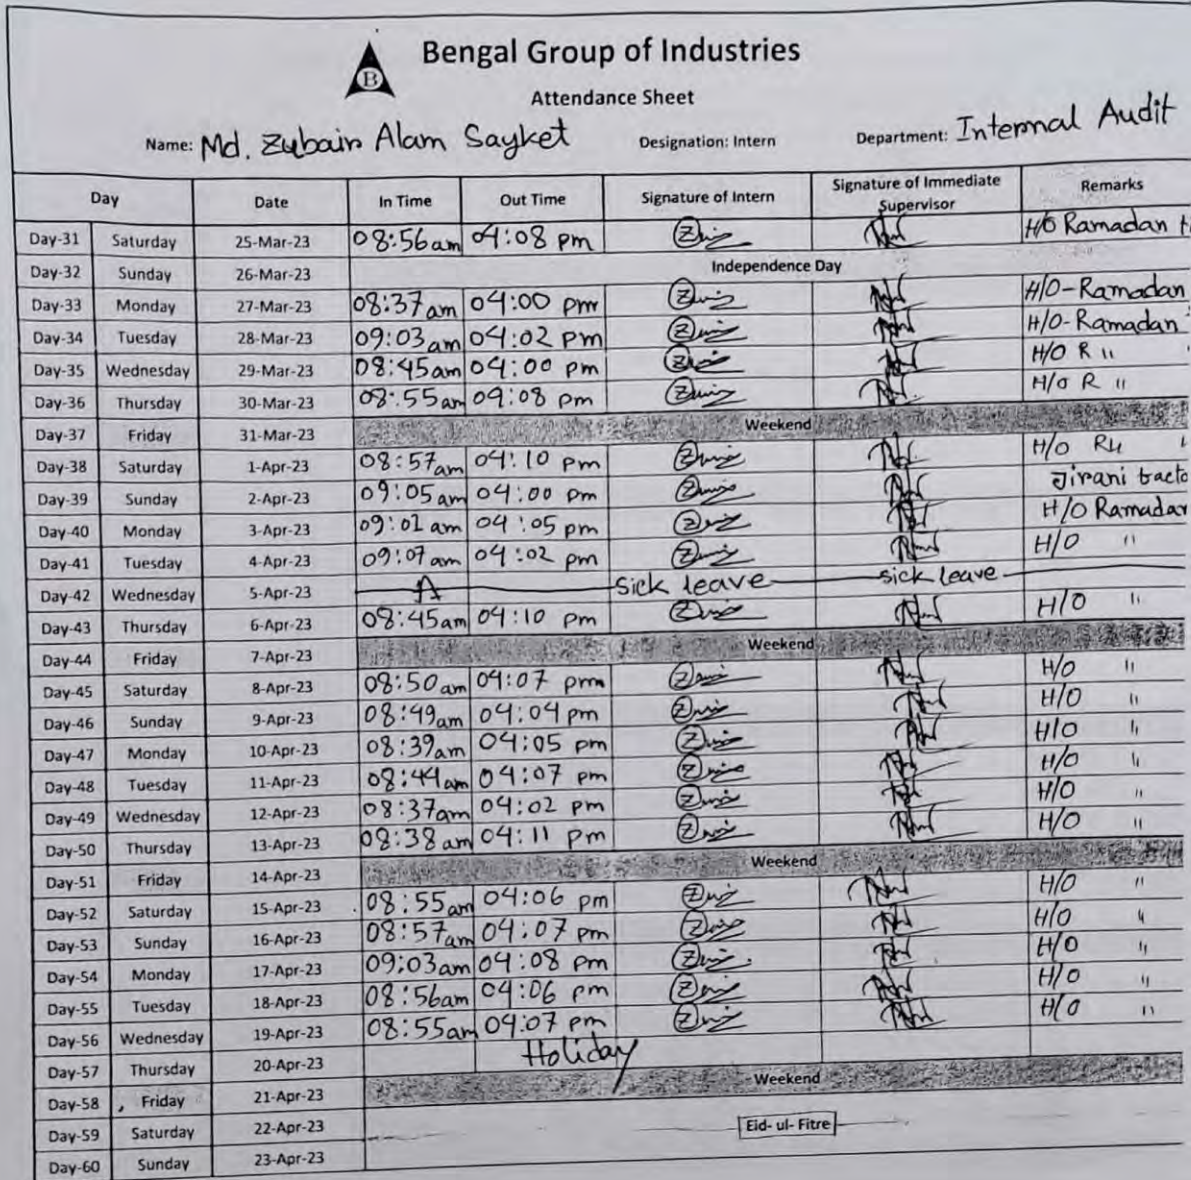 B
Bengal Group of Industries
Attendance Sheet
Name: Md. Zubair Alam Sayket Designation: Intern Department: Internal Audit
Day Date In Time Out Time Signature of Intern Signature of Immediate Supervisor Remarks
Day-31 Saturday 25-Mar-23 08:56am 04:08 pm H/O Ramadan
Day-32 Sunday 26-Mar-23 Independence Day
Day-33 Monday 27-Mar-23 08:37am 04:00 pm H/O-Ramadan
Day-34 Tuesday 28-Mar-23 09:03am 04:02 pm H/O-Ramadan
Day-35 Wednesday 29-Mar-23 08:45am 04:00 pm H/O R "
Day-36 Thursday 30-Mar-23 08:55am 04:08 pm H/O R "
Day-37 Friday 31-Mar-23 Weekend
Day-38 Saturday 1-Apr-23 08:57am 04:10 pm H/O R "
Day-39 Sunday 2-Apr-23 09:05am 04:00 pm Jirani
Day-40 Monday 3-Apr-23 09:01am 04:05pm H/O Ramadan
Day-41 Tuesday 4-Apr-23 09:07am 04:02 pm H/O "
Day-42 Wednesday 5-Apr-23 A sick leave sick leave
Day-43 Thursday 6-Apr-23 08:45am 04:10 pm H/O "
Day-44 Friday 7-Apr-23 Weekend
Day-45 Saturday 8-Apr-23 08:50am 04:07 pm H/O "
Day-46 Sunday 9-Apr-23 08:49am 04:04pm H/O "
Day-47 Monday 10-Apr-23 08:39am 04:05 pm H/O "
Day-48 Tuesday 11-Apr-23 08:44am 04:07 pm H/O "
Day-49 Wednesday 12-Apr-23 08:37am 04:02 pm H/O "
Day-50 Thursday 13-Apr-23 08:38am 04:11 pm H/O "
Day-51 Friday 14-Apr-23 Weekend
Day-52 Saturday 15-Apr-23 08:55am 04:06 pm H/O "
Day-53 Sunday 16-Apr-23 08:57am 04:07 pm H/O "
Day-54 Monday 17-Apr-23 09:03am 04:08 pm H/O "
Day-55 Tuesday 18-Apr-23 08:56am 04:06 pm H/O "
Day-56 Wednesday 19-Apr-23 08:55am 04:07 pm H/O "
Day-57 Thursday 20-Apr-23 Holiday
Day-58 Friday 21-Apr-23 Weekend
Day-59 Saturday 22-Apr-23 Eid- ul- Fitre
Day-60 Sunday 23-Apr-23